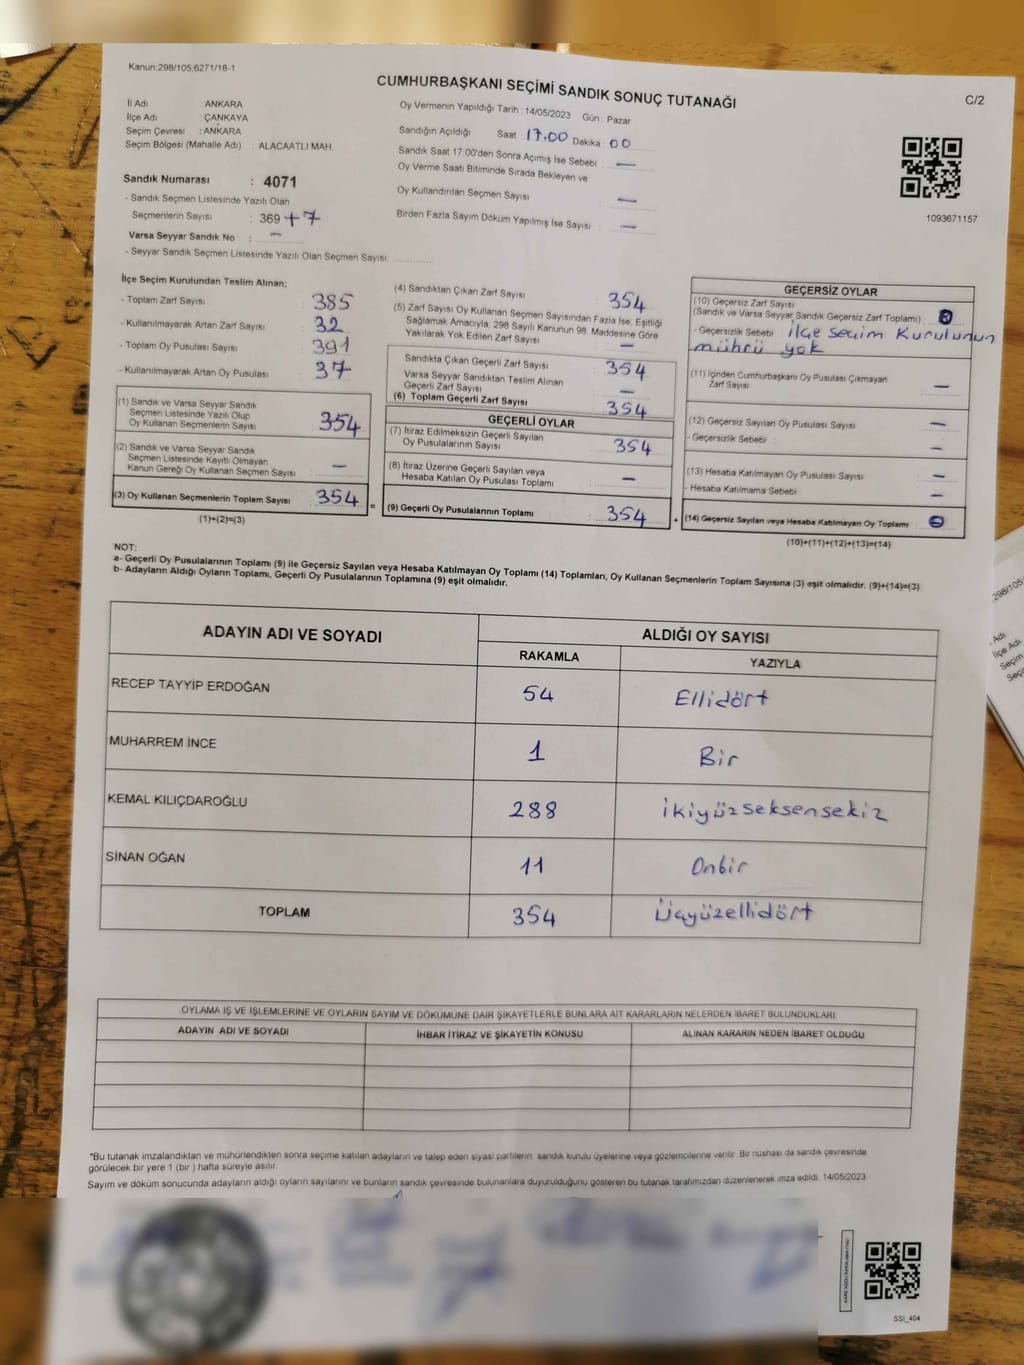 Kanun:298/105;6271/18-1
CUMHURBAŞKANI SEÇİMİ SANDIK SONUÇ TUTANAĞI
C/2
İl Adı : ANKARA
İlçe Adı : ÇANKAYA
Seçim Çevresi : ANKARA
Seçim Bölgesi (Mahalle Adı) : ALACAATLI MAH.
Sandık Numarası : 4071
- Sandık Seçmen Listesinde Yazılı Olan
Seçmenlerin Sayısı : 369 +7
Varsa Seyyar Sandık No : —
- Seyyar Sandık Seçmen Listesinde Yazılı Olan Seçmen Sayısı:
Oy Vermenin Yapıldığı Tarih : 14/05/2023 Gün : Pazar
Sandığın Açıldığı Saat : 17.00 Dakika : 00
Sandık Saat 17:00'den Sonra Açımış İse Sebebi : —
Oy Verme Saati Bitiminde Sırada Bekleyen ve
Oy Kullandırılan Seçmen Sayısı —
Birden Fazla Sayım Döküm Yapılmış İse Sayısı : —
1093671157
İlçe Seçim Kurulundan Teslim Alınan;
- Toplam Zarf Sayısı : 385
- Kullanılmayarak Artan Zarf Sayısı : 32
- Toplam Oy Pusulası Sayısı : 391
- Kullanılmayarak Artan Oy Pusulası : 37
(1) Sandık ve Varsa Seyyar Sandık
Seçmen Listesinde Yazılı Olup
Oy Kullanan Seçmenlerin Sayısı : 354
(2) Sandık ve Varsa Seyyar Sandık
Seçmen Listesinde Kayıtlı Olmayan
Kanun Gereği Oy Kullanan Seçmen Sayısı : —
(3) Oy Kullanan Seçmenlerin Toplam Sayısı : 354
(1)+(2)=(3)
=
(4) Sandıktan Çıkan Zarf Sayısı : 354
(5) Zarf Sayısı Oy Kullanan Seçmen Sayısından Fazla İse, Eşitliği
Sağlamak Amacıyla, 298 Sayılı Kanunun 98. Maddesine Göre
Yakılarak Yok Edilen Zarf Sayısı : —
Sandıkta Çıkan Geçerli Zarf Sayısı : 354
Varsa Seyyar Sandıktan Teslim Alınan
Geçerli Zarf Sayısı : —
(6) Toplam Geçerli Zarf Sayısı : 354
GEÇERLİ OYLAR
(7) İtiraz Edilmeksizin Geçerli Sayılan
Oy Pusulalarının Sayısı : 354
(8) İtiraz Üzerine Geçerli Sayılan veya
Hesaba Katılan Oy Pusulası Toplamı : —
(9) Geçerli Oy Pusulalarının Toplamı : 354
+
GEÇERSİZ OYLAR
(10) Geçersiz Zarf Sayısı
(Sandık ve Varsa Seyyar Sandık Geçersiz Zarf Toplamı) :
- Geçersizlik Sebebi : ilçe seçim Kurulunun
mührü yok
(11) İçinden Cumhurbaşkanı Oy Pusulası Çıkmayan
Zarf Sayısı : —
(12) Geçersiz Sayılan Oy Pusulası Sayısı : —
- Geçersizlik Sebebi : —
(13) Hesaba Katılmayan Oy Pusulası Sayısı : —
- Hesaba Katılmama Sebebi : —
(14) Geçersiz Sayılan veya Hesaba Katılmayan Oy Toplamı :
(10)+(11)+(12)+(13)=(14)
NOT:
a- Geçerli Oy Pusulalarının Toplamı (9) ile Geçersiz Sayılan veya Hesaba Katılmayan Oy Toplamı (14) Toplamları, Oy Kullanan Seçmenlerin Toplam Sayısına (3) eşit olmalıdır. (9)+(14)=(3)
b- Adayların Aldığı Oyların Toplamı, Geçerli Oy Pusulalarının Toplamına (9) eşit olmalıdır.
ADAYIN ADI VE SOYADI
ALDIĞI OY SAYISI
RAKAMLA YAZIYLA
RECEP TAYYİP ERDOĞAN 54 Ellidört
MUHARREM İNCE 1 Bir
KEMAL KILIÇDAROĞLU 288 ikiyüzseksensekiz
SİNAN OĞAN 11 Onbir
TOPLAM 354 Üçyüzellidört
OYLAMA İŞ VE İŞLEMLERİNE VE OYLARIN SAYIM VE DÖKÜMÜNE DAİR ŞİKAYETLERLE BUNLARA AİT KARARLARIN NELERDEN İBARET BULUNDUKLARI
ADAYIN ADI VE SOYADI İHBAR İTİRAZ VE ŞİKAYETİN KONUSU ALINAN KARARIN NEDEN İBARET OLDUĞU
*Bu tutanak imzalandıktan ve mühürlendikten sonra seçime katılan adayların ve talep eden siyasi partilerin sandık kurulu üyelerine veya gözlemcilerine verilir. Bir nüshası da sandık çevresinde
görülecek bir yere 1 (bir ) hafta süreyle asılır.
Sayım ve döküm sonucunda adayların aldığı oyların sayılarını ve bunların sandık çevresinde bulunanlara duyurulduğunu gösteren bu tutanak tarafımızdan düzenlenerek imza edildi. 14/05/2023
SSI_404
298/105
Adı
İlçe Adı
Seçim
Seç